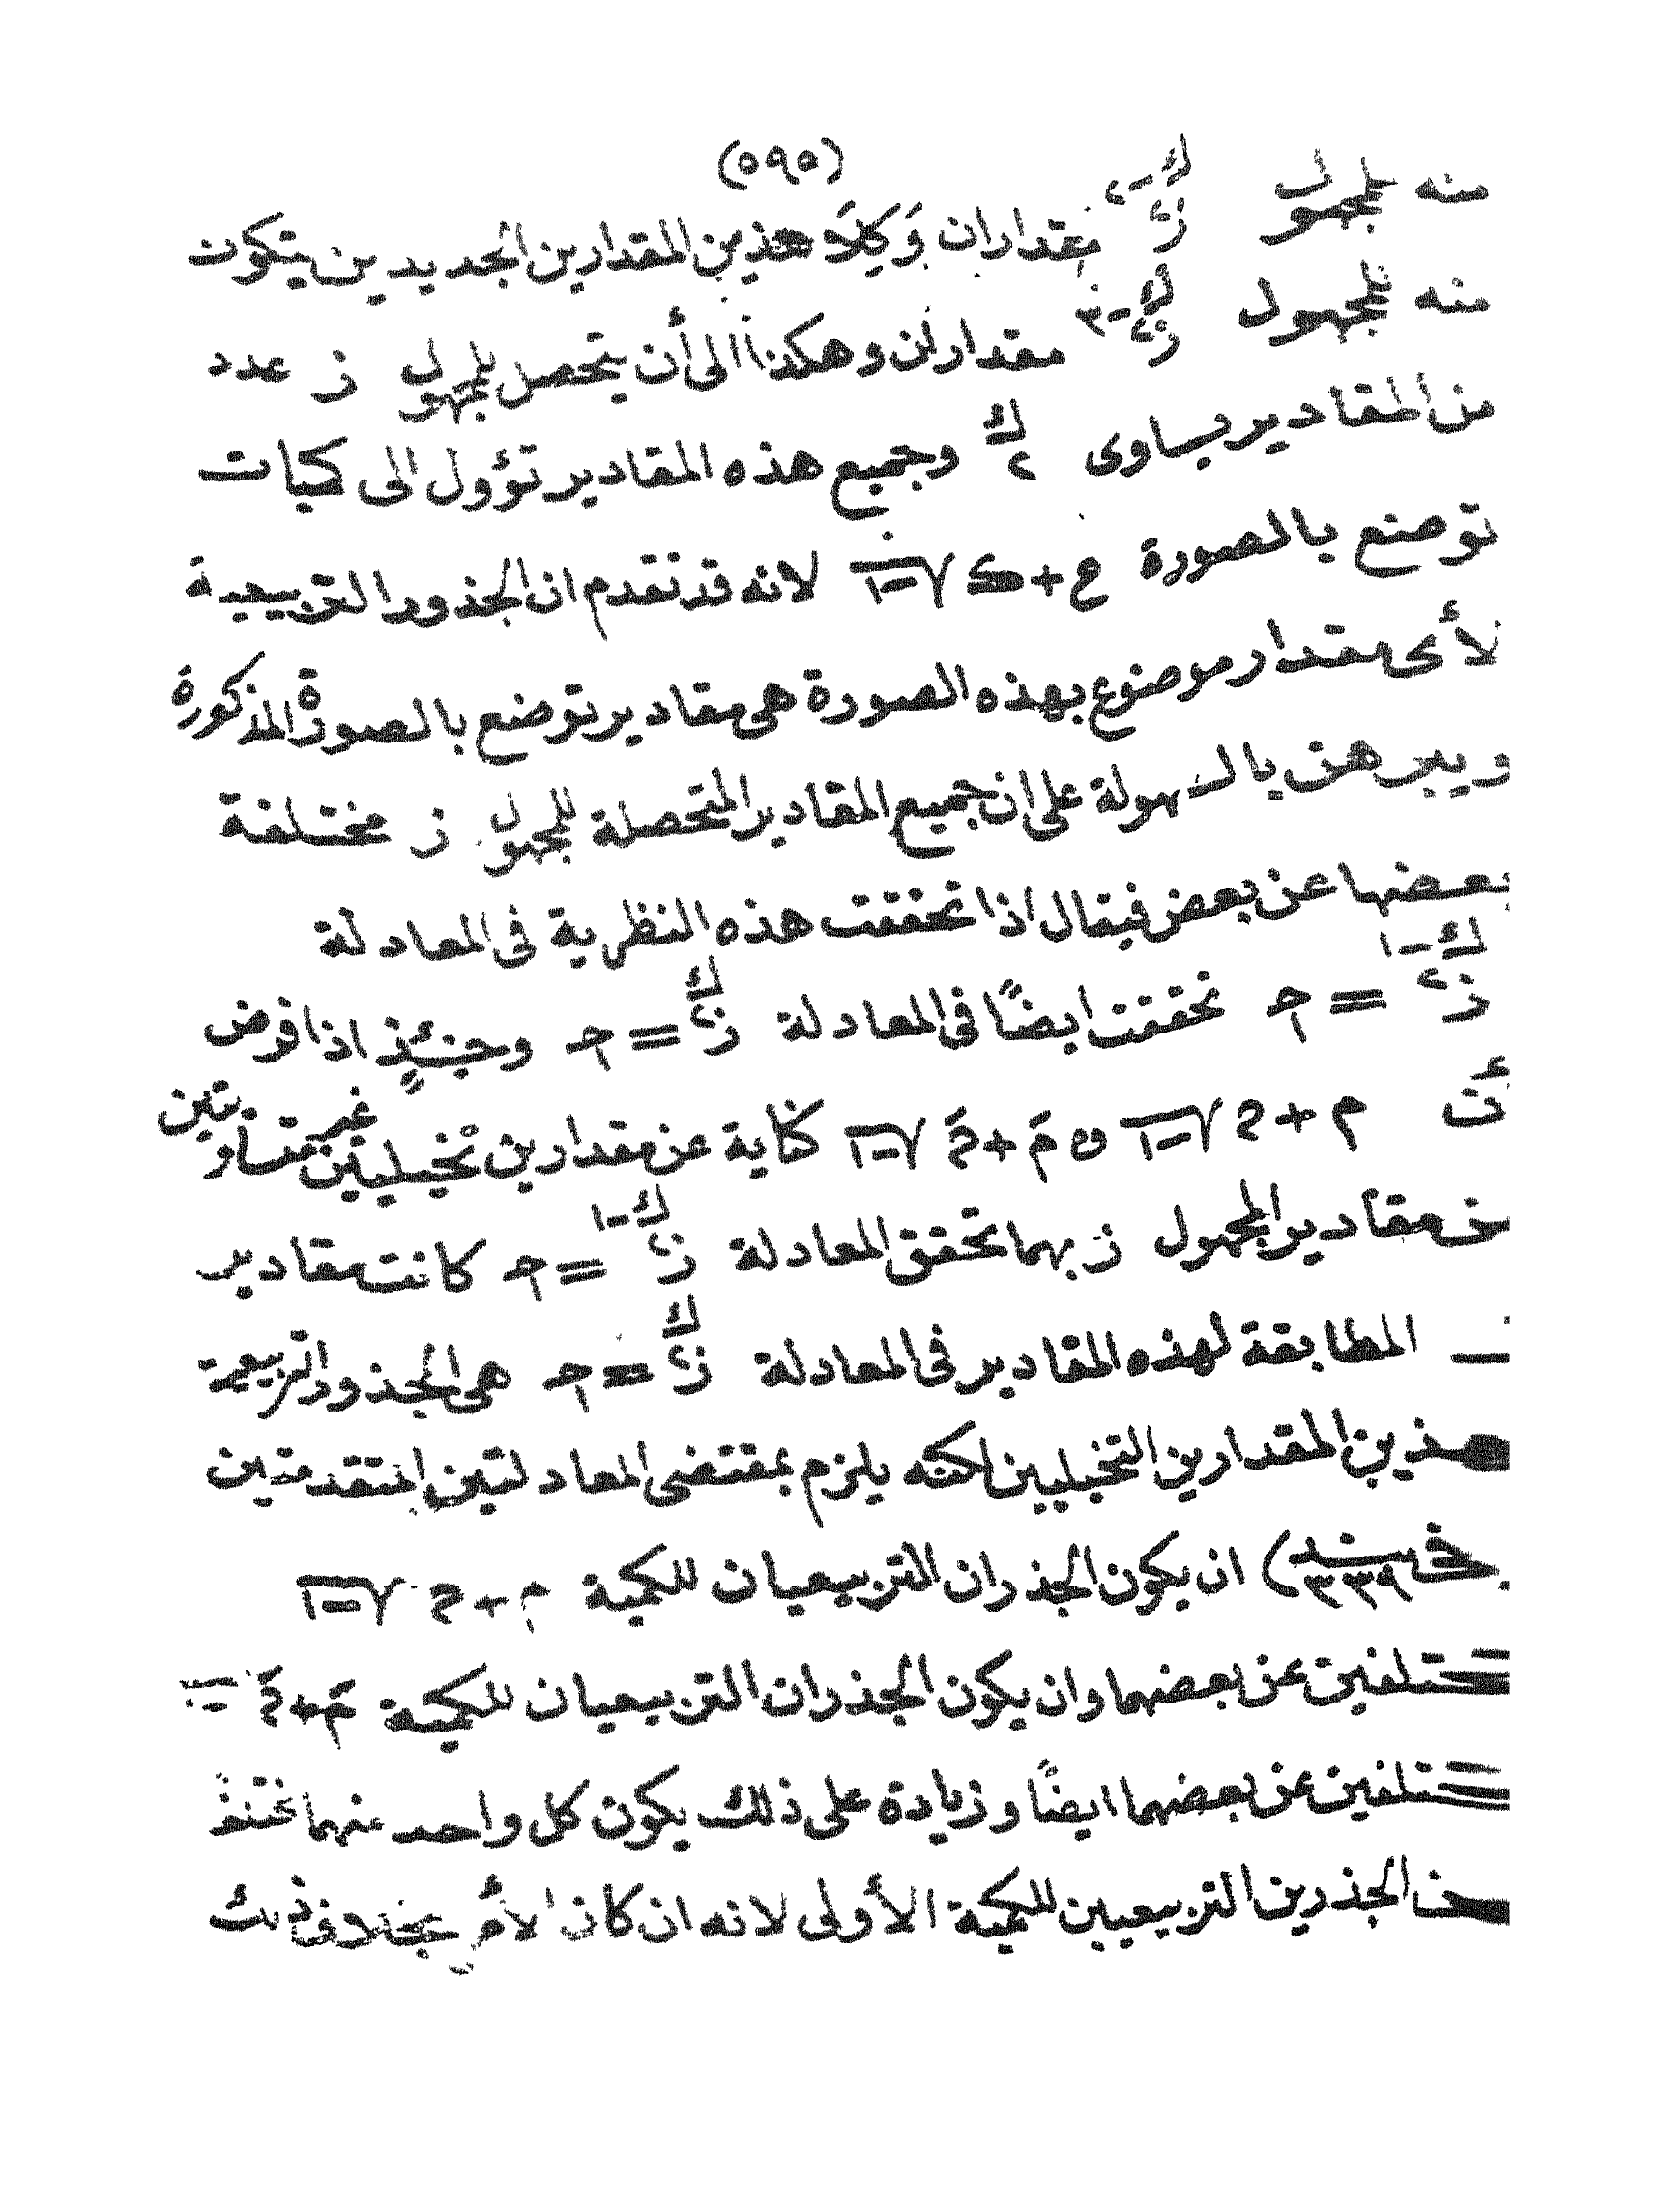 (٥٩٥)
منه للمجهول ز^٢^(ك-٢) مقداران وكلا هذين المقدارين الجديدين يتكون
منه للمجهول ز^٢^(ك-٣) مقداران وهكذا الى أن يتحصل للمجهول ز عدد
من المقادير يساوى ٢^ك وجميع هذه المقادير تؤول الى كميات
توضع بالصورة ع + ك √-١ لانه قد تقدم ان الجذور التربيعية
لأى مقدار موضوع بهذه الصورة هى مقادير توضع بالصورة المذكورة
ويبرهن بالسهولة على ان جميع المقادير المتحصلة للمجهول ز مختلفة
بعضها عن بعض فيقال اذا تحققت هذه النظرية فى المعادلة
ز^٢^(ك-١) = حـ تحققت ايضًا فى المعادلة ز^٢^ك = حـ وحينئذٍ اذا فرض
أن م + ح √-١ و مَ + حَ √-١ كناية عن مقدارين تخيليين غير متساويين
من مقادير المجهول ز بهما تحقق المعادلة ز^٢^(ك-١) = حـ كانت مقادير
المطابقة لهذه المقادير فى المعادلة ز^٢^ك = حـ هى الجذور التربيعية
لهذين المقدارين التخيليين لكنه يلزم بمقتضى المعادلتين المتقدمتين
٣٣٩) ان يكون الجذران التربيعيان للكمية م + ح √-١
مختلفين عن بعضهما وان يكون الجذران التربيعيان للكمية مَ + حَ
مختلفين عن بعضهما ايضًا وزيادة على ذلك يكون كل واحد منهما مختلفا
عن الجذرين التربيعيين للكمية الأولى لانه ان كان الأمر بخلاف ذلك